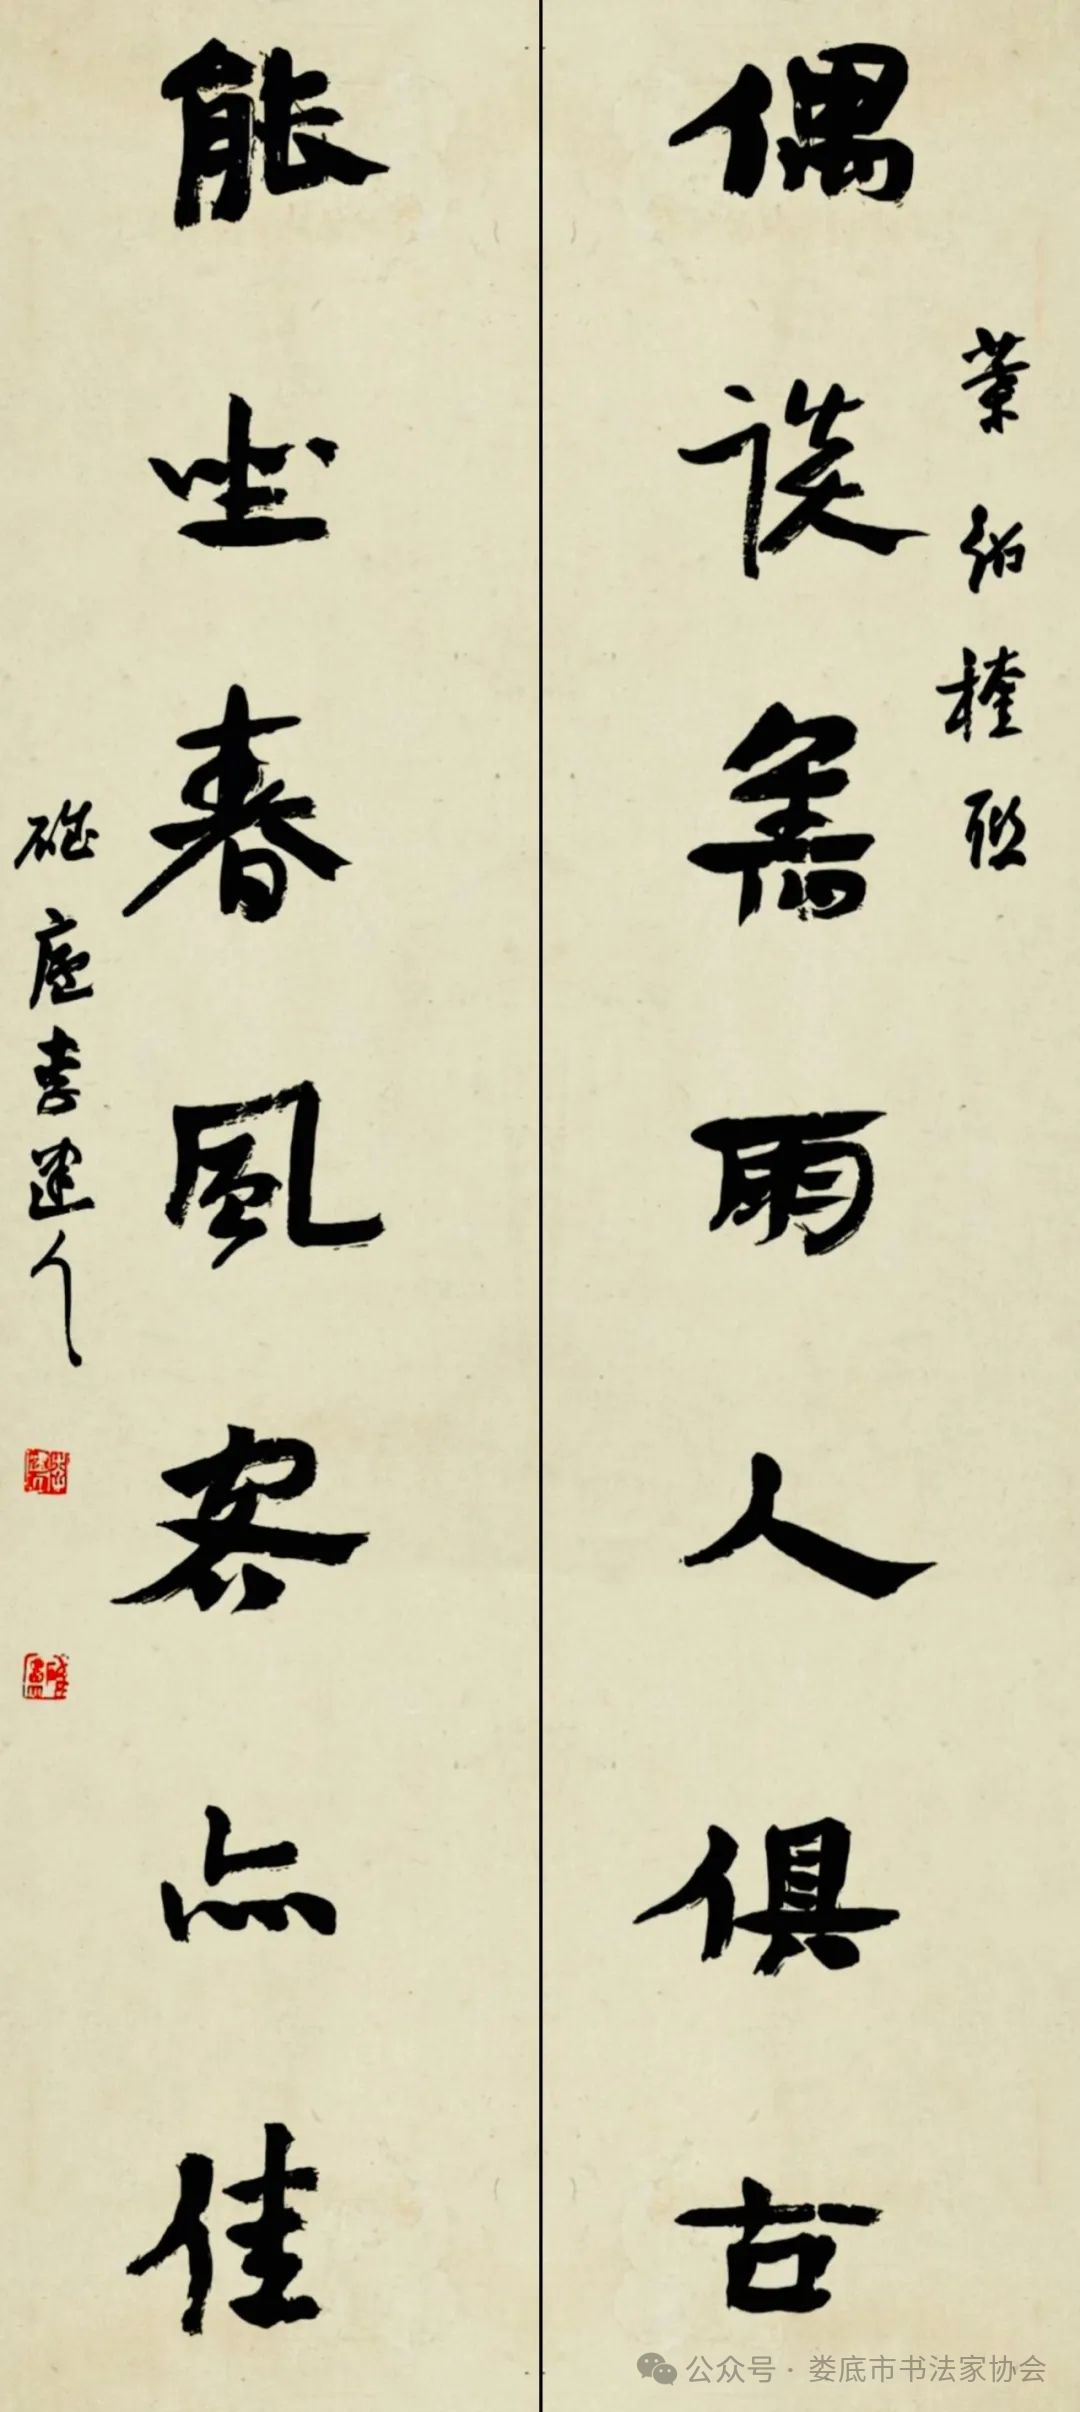 偶談舊雨人俱古
葉紹楏聯
能坐春風客亦佳
廬李建人
公众号·娄底市书法家协会